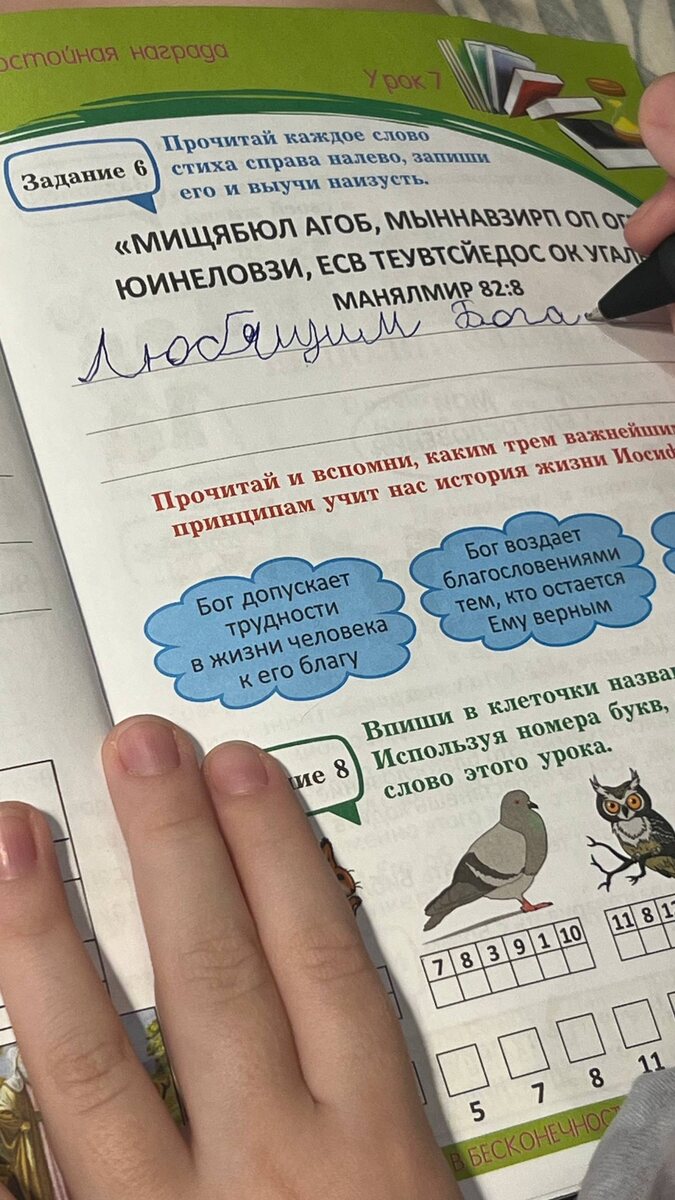 остойная награда
Урок 7
Задание 6
Прочитай каждое слово
стиха справа налево, запиши
его и выучи наизусть.
«МИЩЯБЮЛ АГОБ, МЫННАВЗИРП ОП ОГ
ЮИНЕЛОВЗИ, ЕСВ ТЕУВТСЙЕДОС ОК УГАЛ
МАНЯЛМИР 82:8
Любящим Бога
Прочитай и вспомни, каким трем важнейшим
принципам учит нас история жизни Иосиф
Бог допускает
трудности
в жизни человека
к его благу
Бог воздает
благословениями
тем, кто остается
Ему верным
ние 8
Впиши в клеточки назва
Используя номера букв,
слово этого урока.
7 8 3 9 1 10
11 8 1
5 7 8 11
В БЕСКОНЕЧНОСТ